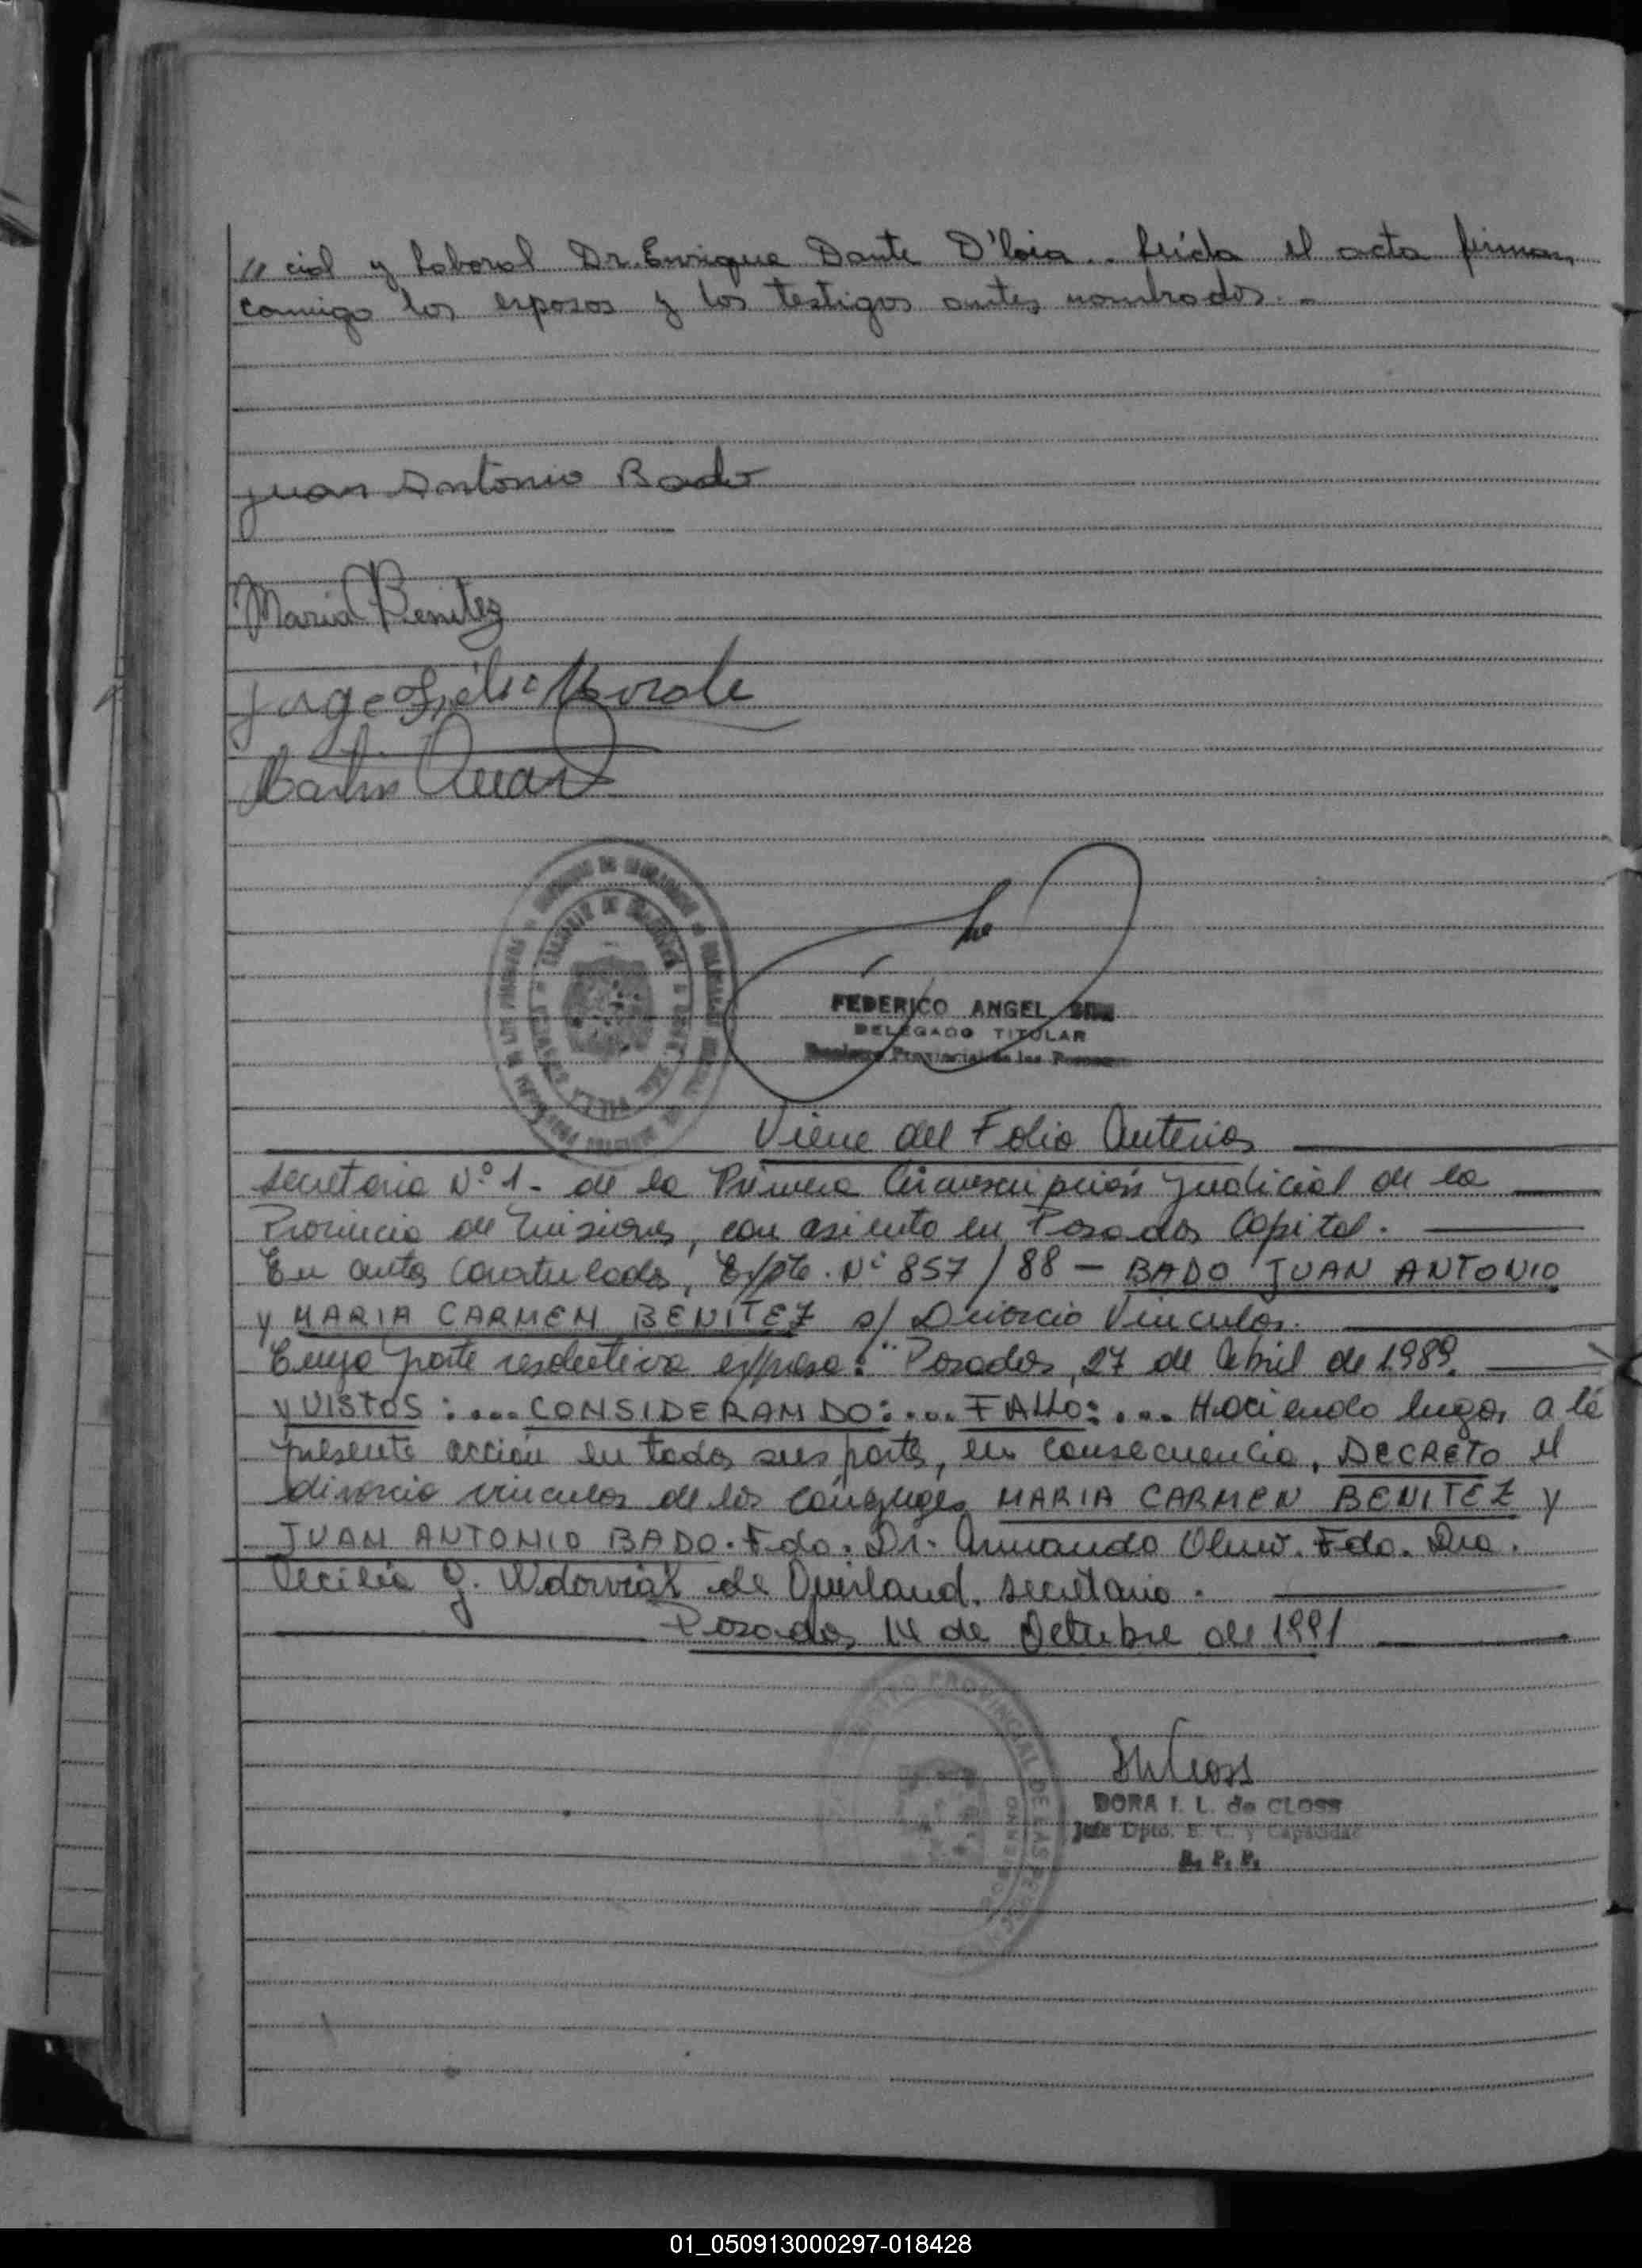 // cial y laboral Dr. Enrique Dante D'loia.. leída el acta firman
conmigo los esposos y los testigos antes nombrados. -
Juan Antonio Bado
Maria Benitez
Jorge
Martin
FEDERICO ANGEL
DELEGADO TITULAR
Provincial de las Personas
Viene del Folio Anterior
Secretaria Nº 1 - de la Primera Circunscripción Judicial de la
Provincia de Misiones, con asiento en Posadas Capital.
En autos caratulados, Expte. Nº 857/88 - BADO JUAN ANTONIO
y MARIA CARMEN BENITEZ s/ Divorcio Vincular.
Cuya parte resolutiva expresa: "Posadas, 27 de Abril de 1989.
y VISTOS: .... CONSIDERANDO: .... FALLO: .... Haciendo lugar a la
presente acción en todas sus partes, en consecuencia, DECRETO el
divorcio vincular de los cónyuges MARIA CARMEN BENITEZ y
JUAN ANTONIO BADO. Fdo. Dr. Armando Fdo. Dra.
Cecilia G. de secretaria.
Posadas, 14 de Octubre de 1991
DORA I. L. de CLOSS
Jefe Dpto. E. C. y Capacidad
R. P. P.
01_050913000297-018428